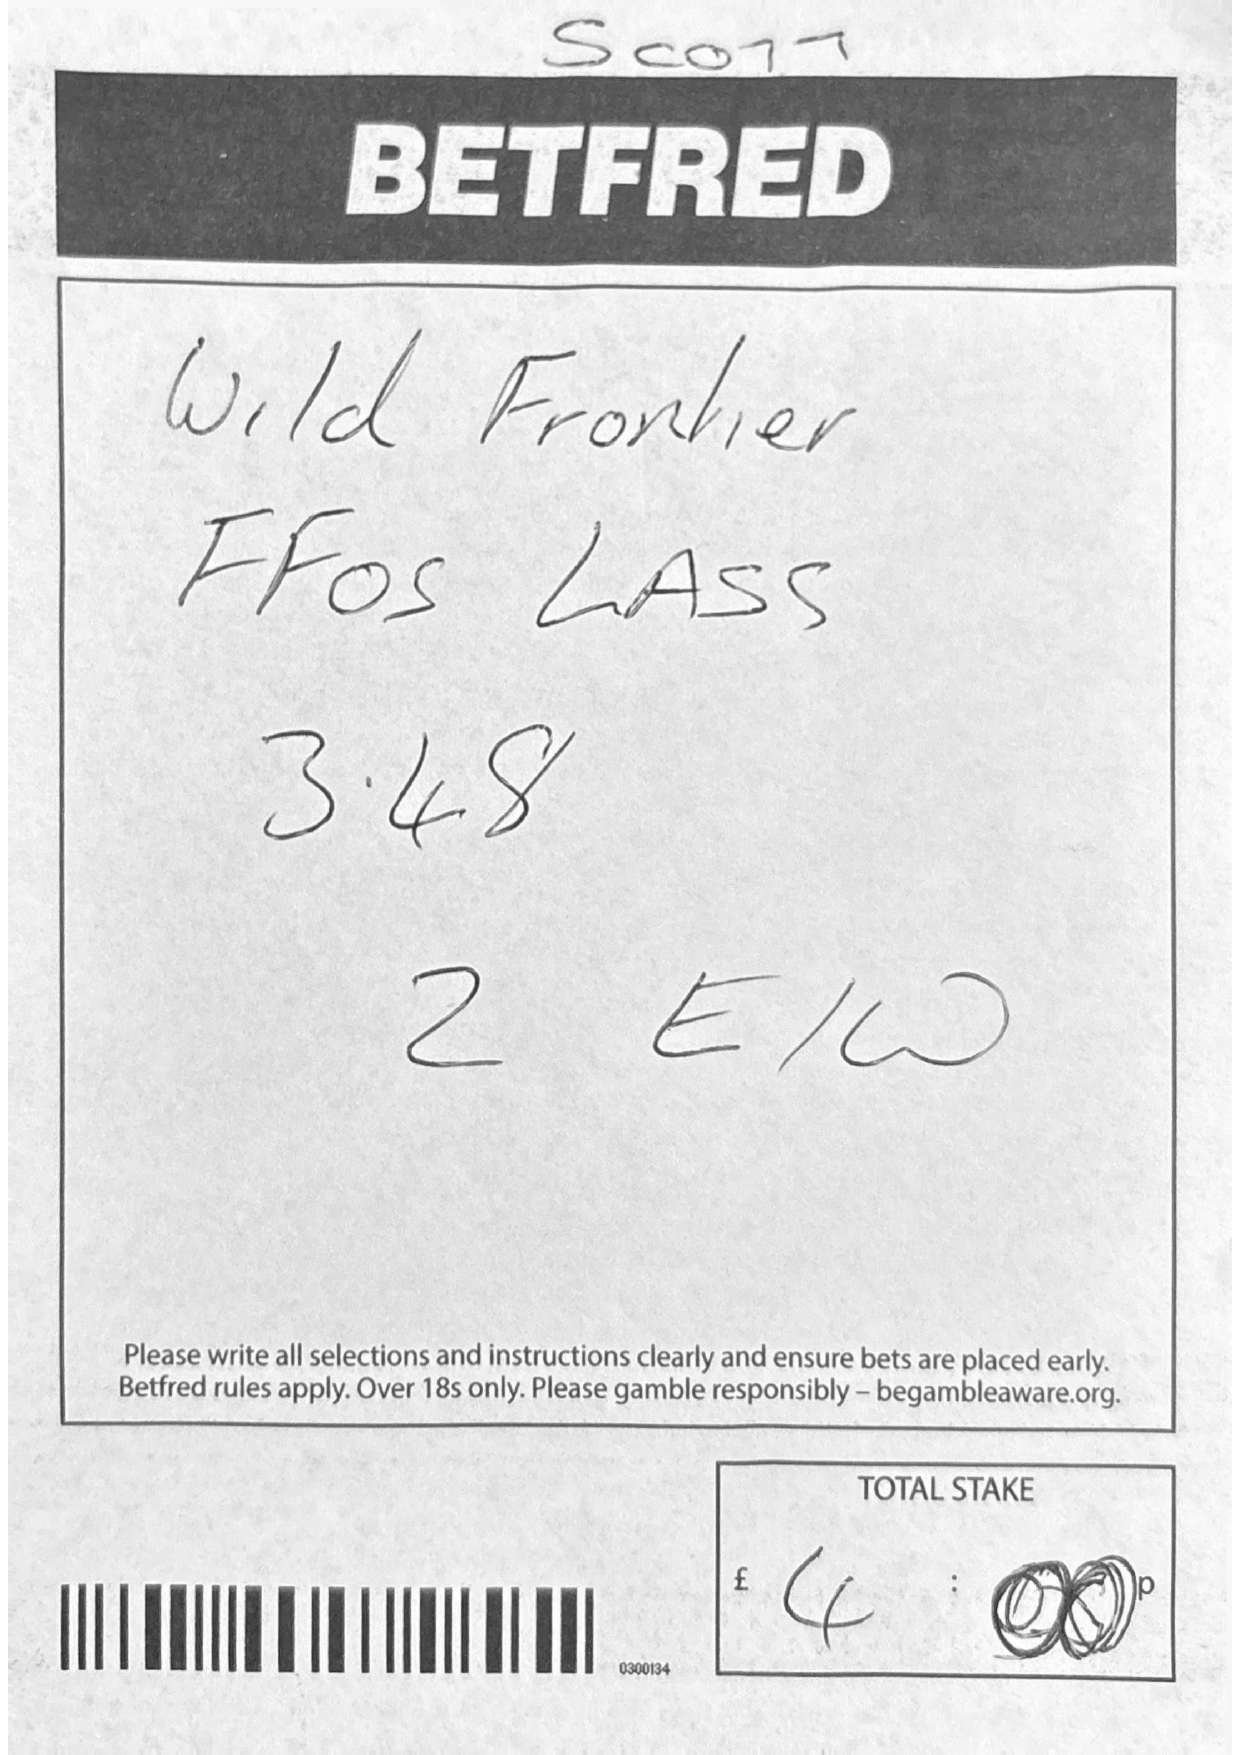 Scott
BETFRED
Wild Frontier
FFOS LASS
3.48
2 E/W
Please write all selections and instructions clearly and ensure bets are placed early.
Betfred rules apply. Over 18s only. Please gamble responsibly – begambleaware.org.
TOTAL STAKE
£ 4 : 00 p
0300134